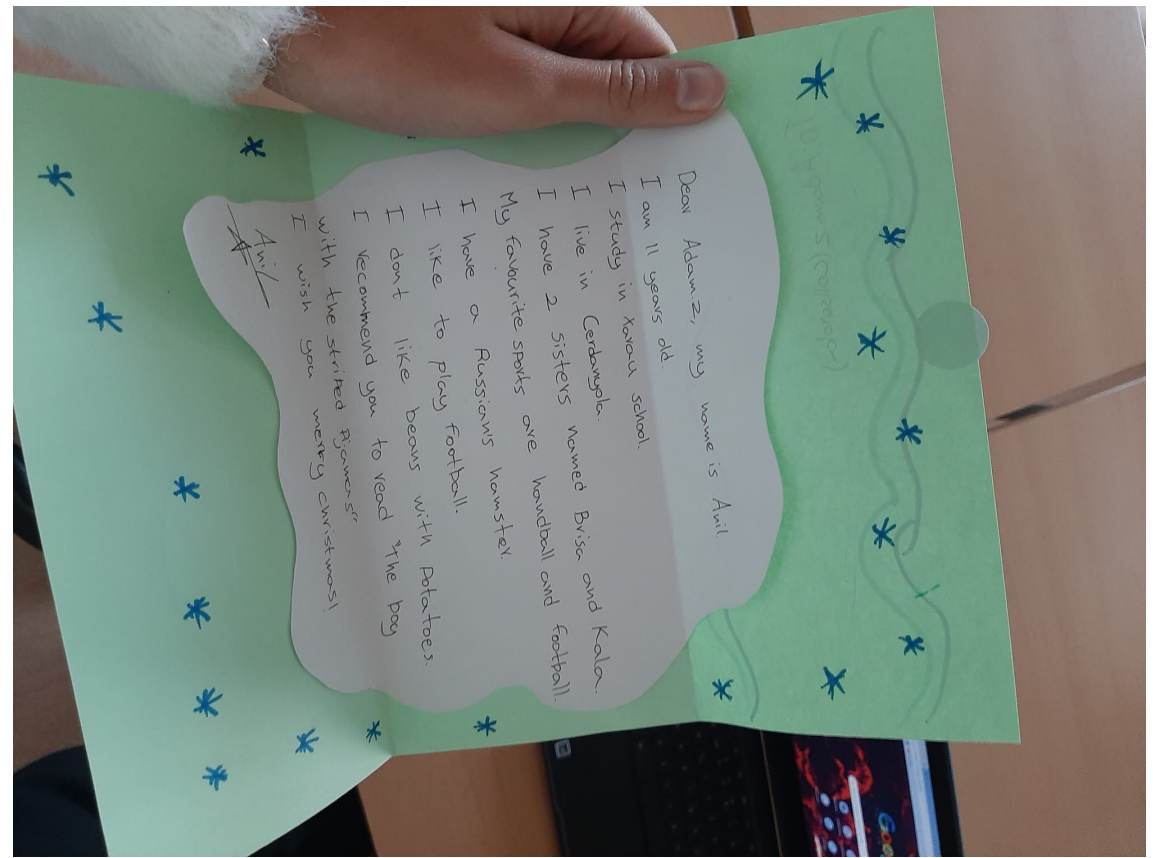 Dear Adam Z, my name is Anil
I am 11 years old.
I study in Xarau school.
I live in Cerdanyola.
I have 2 sisters named Brisa and Kala.
My favourite sports are handball and football.
I have a Russians hamster.
I like to play football.
I dont like beans with Potatoes.
I recommend you to read "the boy
with the striped Pjamas"
I wish you merry christmas!
Anil